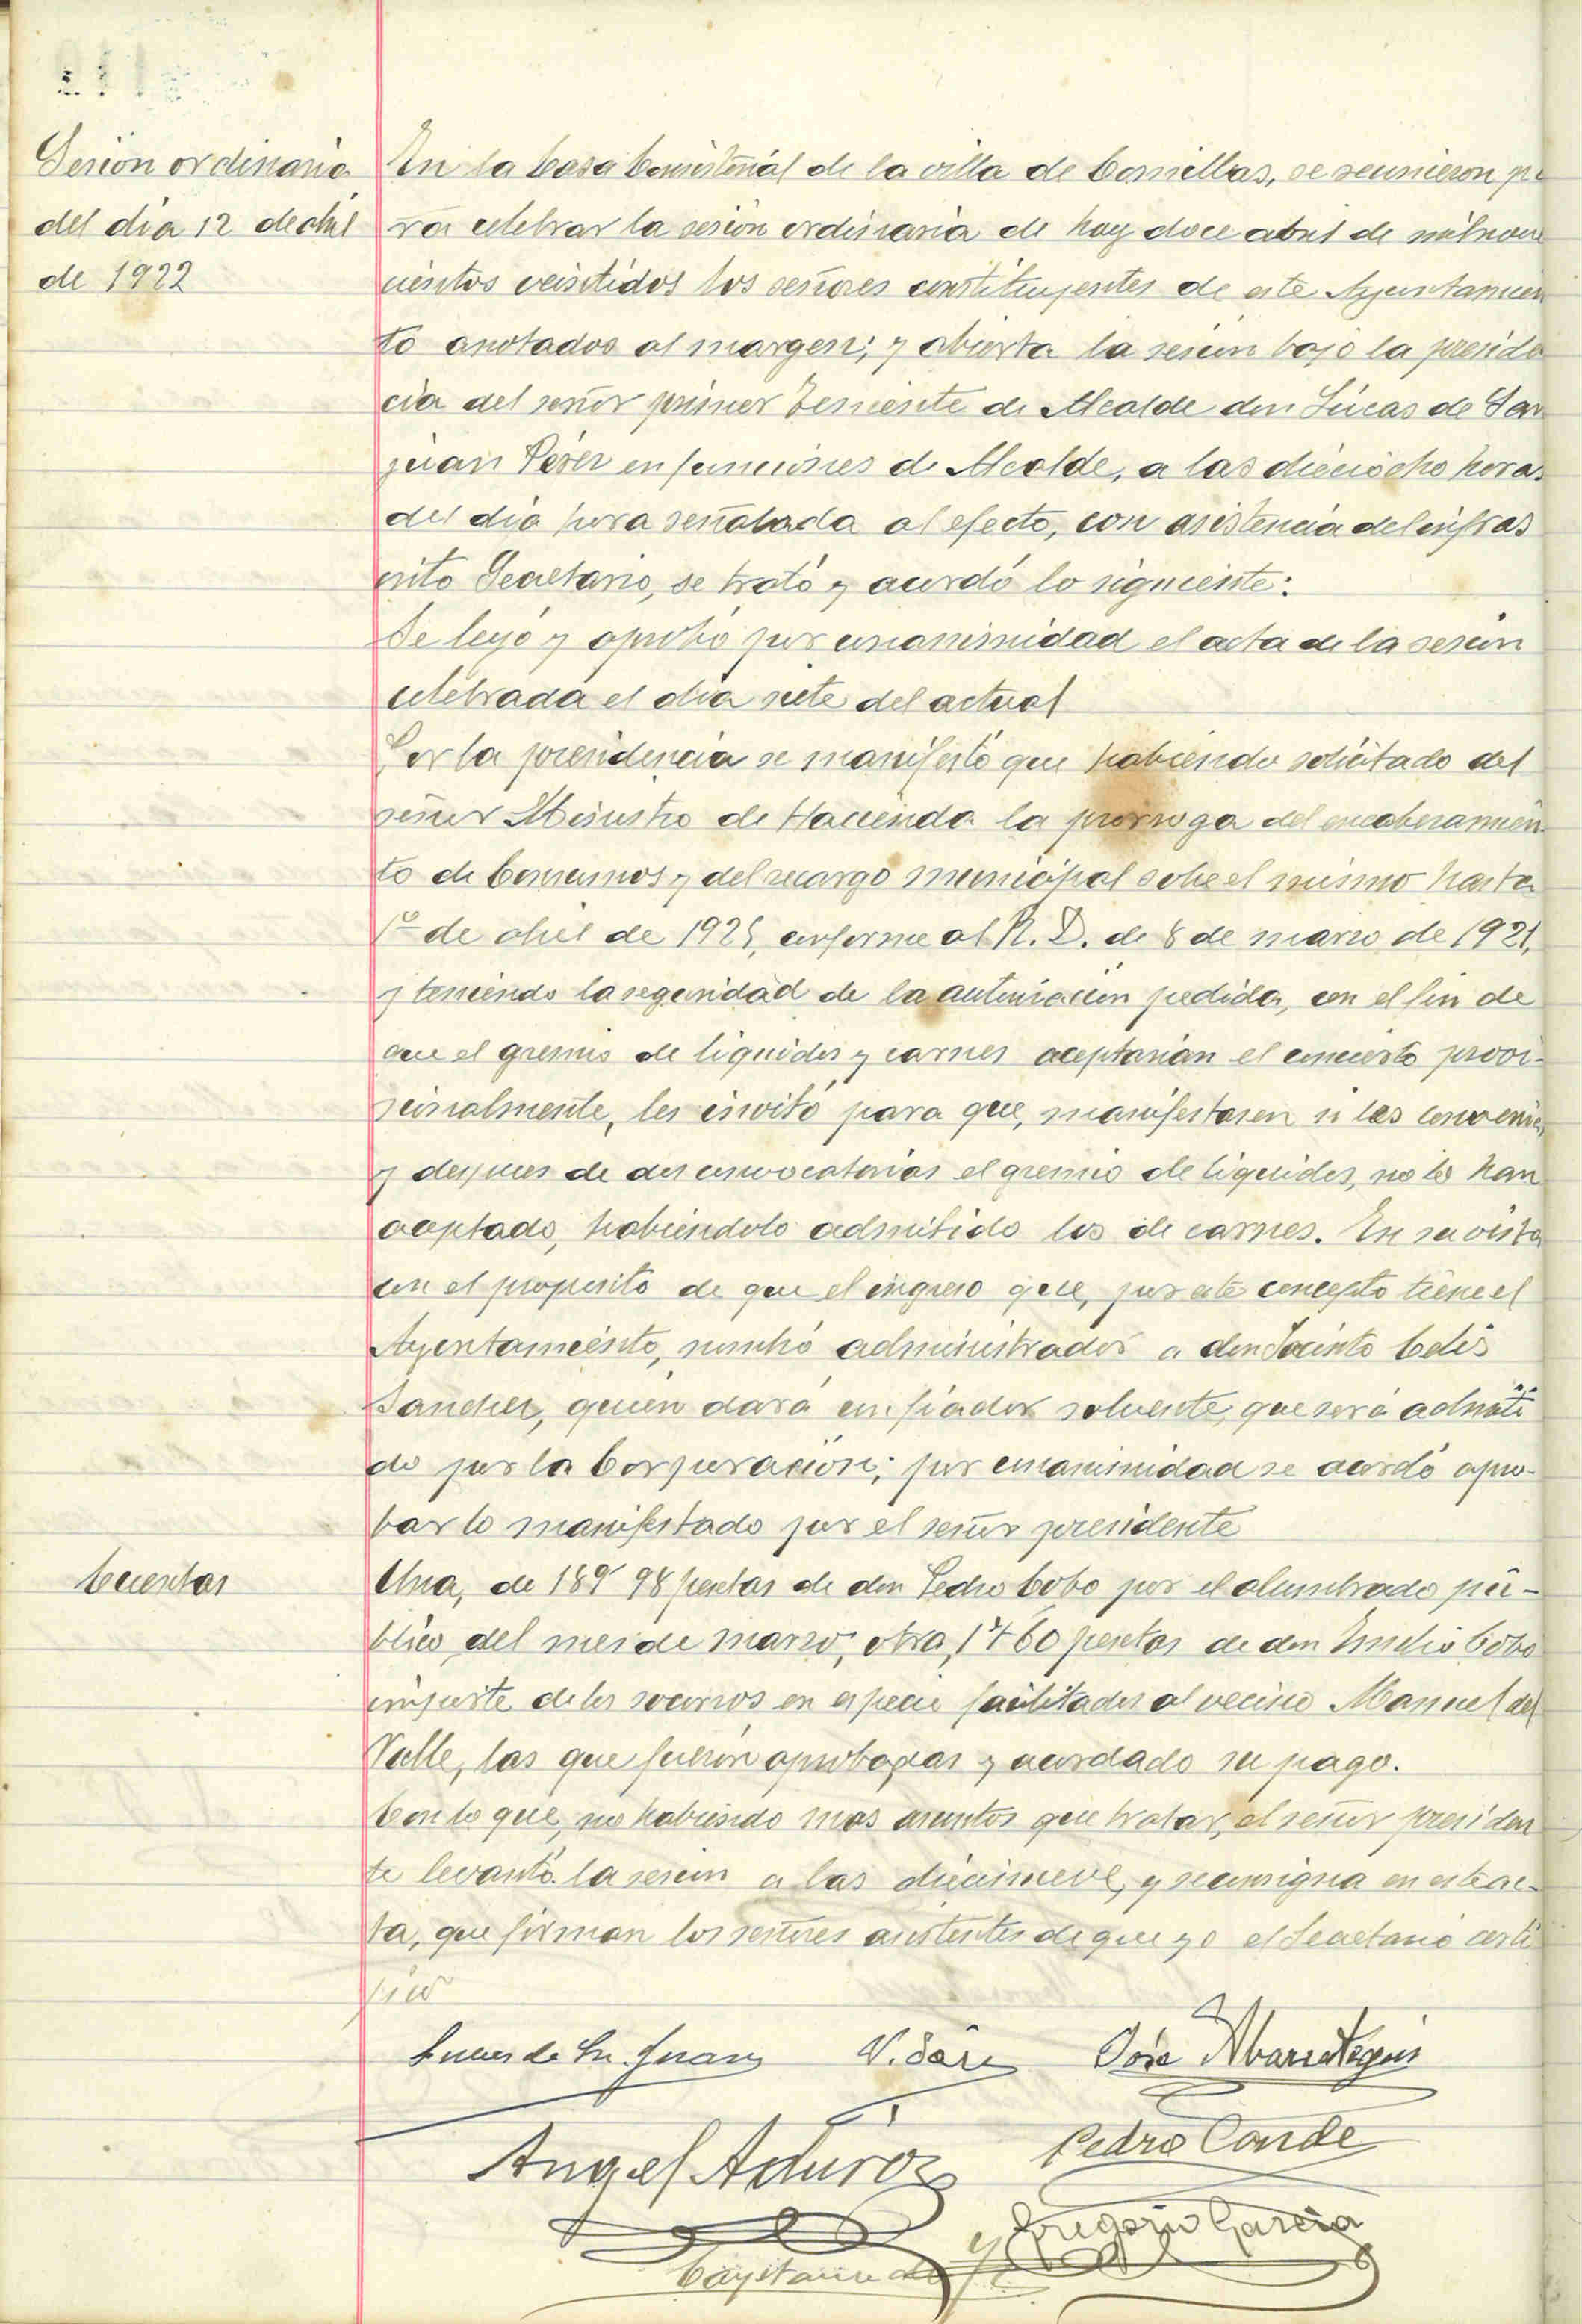 Sesión ordinaria
del dia 12 de abril
de 1922
En la Casa Consistorial de la villa de Comillas, se reunieron pa
ra celebrar la sesión ordinaria de hoy doce abril de mil nove
cientos veintidos los señores constituyentes de este Ayuntamien
to anotados al margen; y abierta la sesión bajo la presiden
cia del señor primer Teniente de Alcalde don Lúcas de San
juan Pérez en funciones de Alcalde, a las dieciocho horas
del dia hora señalada al efecto, con asistencia del infras
crito Secretario, se trató y acordó lo siguiente:
Se leyó y aprobó por unanimidad el acta de la sesión
celebrada el dia siete del actual
Por la presidencia se manifestó que habiendo solicitado del
señor Ministro de Hacienda la prorroga del encabezamien
to de Consumos y del recargo municipal sobe el mismo hasta
1º de abril de conforme al R. D. de 8 de marzo de 1921,
y teniendo la seguridad de la autorización pedida, con el fin de
que el gremio de liquidos y carnes aceptarian el concierto provi-
sionalmente, les invitó para que, manifestasen si les convenia,
y despues de dos convocatorias el gremio de liquidos, no lo han
aceptado, habiéndolo admitido los de carnes. En su vista
con el proposito de que el ingreso que, por este concepto tiene el
Ayuntamiento, nombró administrador a don Jacinto Celis
Sanchez, quien dará un fiador solvente, que será admiti
do por la Corporación; por unanimidad se acordó apro-
bar lo manifestado por el señor presidente
Cuentas
Una, de 189'98 pesetas de don Pedro Cobo por el alumbrado pú-
blico del mes de marzo; otra, 17'60 pesetas de don Emilio Cobo
importe de los socorros en especie facilitados al vecino Manuel del
Valle, las que fueron aprobadas y acordado su pago.
Con lo que, no habiendo mas asuntos que tratar, el señor presiden
te levantó la sesión a las diecinueve, y se consigna en este ac-
ta, que firman los señores asistentes de que yo el Secretario certi
fico
Lucas de Sn. Juan
José
Angel Aduroz
Pedro Conde
Gregorio Garcia
Cayetano